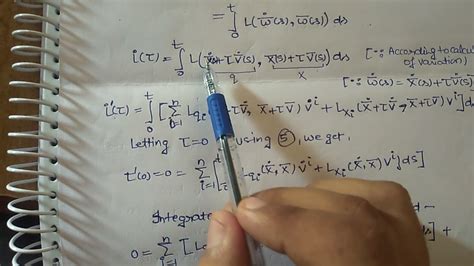 = ∫₀ᵗ L(ẇ̄(s), w̄(s)) ds
i(τ) = ∫₀ᵗ L(ẋ̄(s)+τv̇̄(s), x̄(s)+τv̄(s)) ds [∵ According to calcul
q x of variation)
[∵ w̄(s) =
i'(τ) = ∫₀ᵗ [ Σⁿᵢ₌₁ L_qᵢ τv̇̄, x̄+τv̄) v̇ⁱ + L_xᵢ(ẋ̄+τv̇̄, x̄+τv̄) vⁱ] d
Letting τ=0 using ⑤, we get,
i'(0) = 0 = Σⁿᵢ₌₁ ∫ L_qᵢ(ẋ̄, x̄) v̇ⁱ + L_xᵢ(ẋ̄, x̄) vⁱ] ds]
Integrat
0 = Σⁿᵢ₌₁ [ ds] +